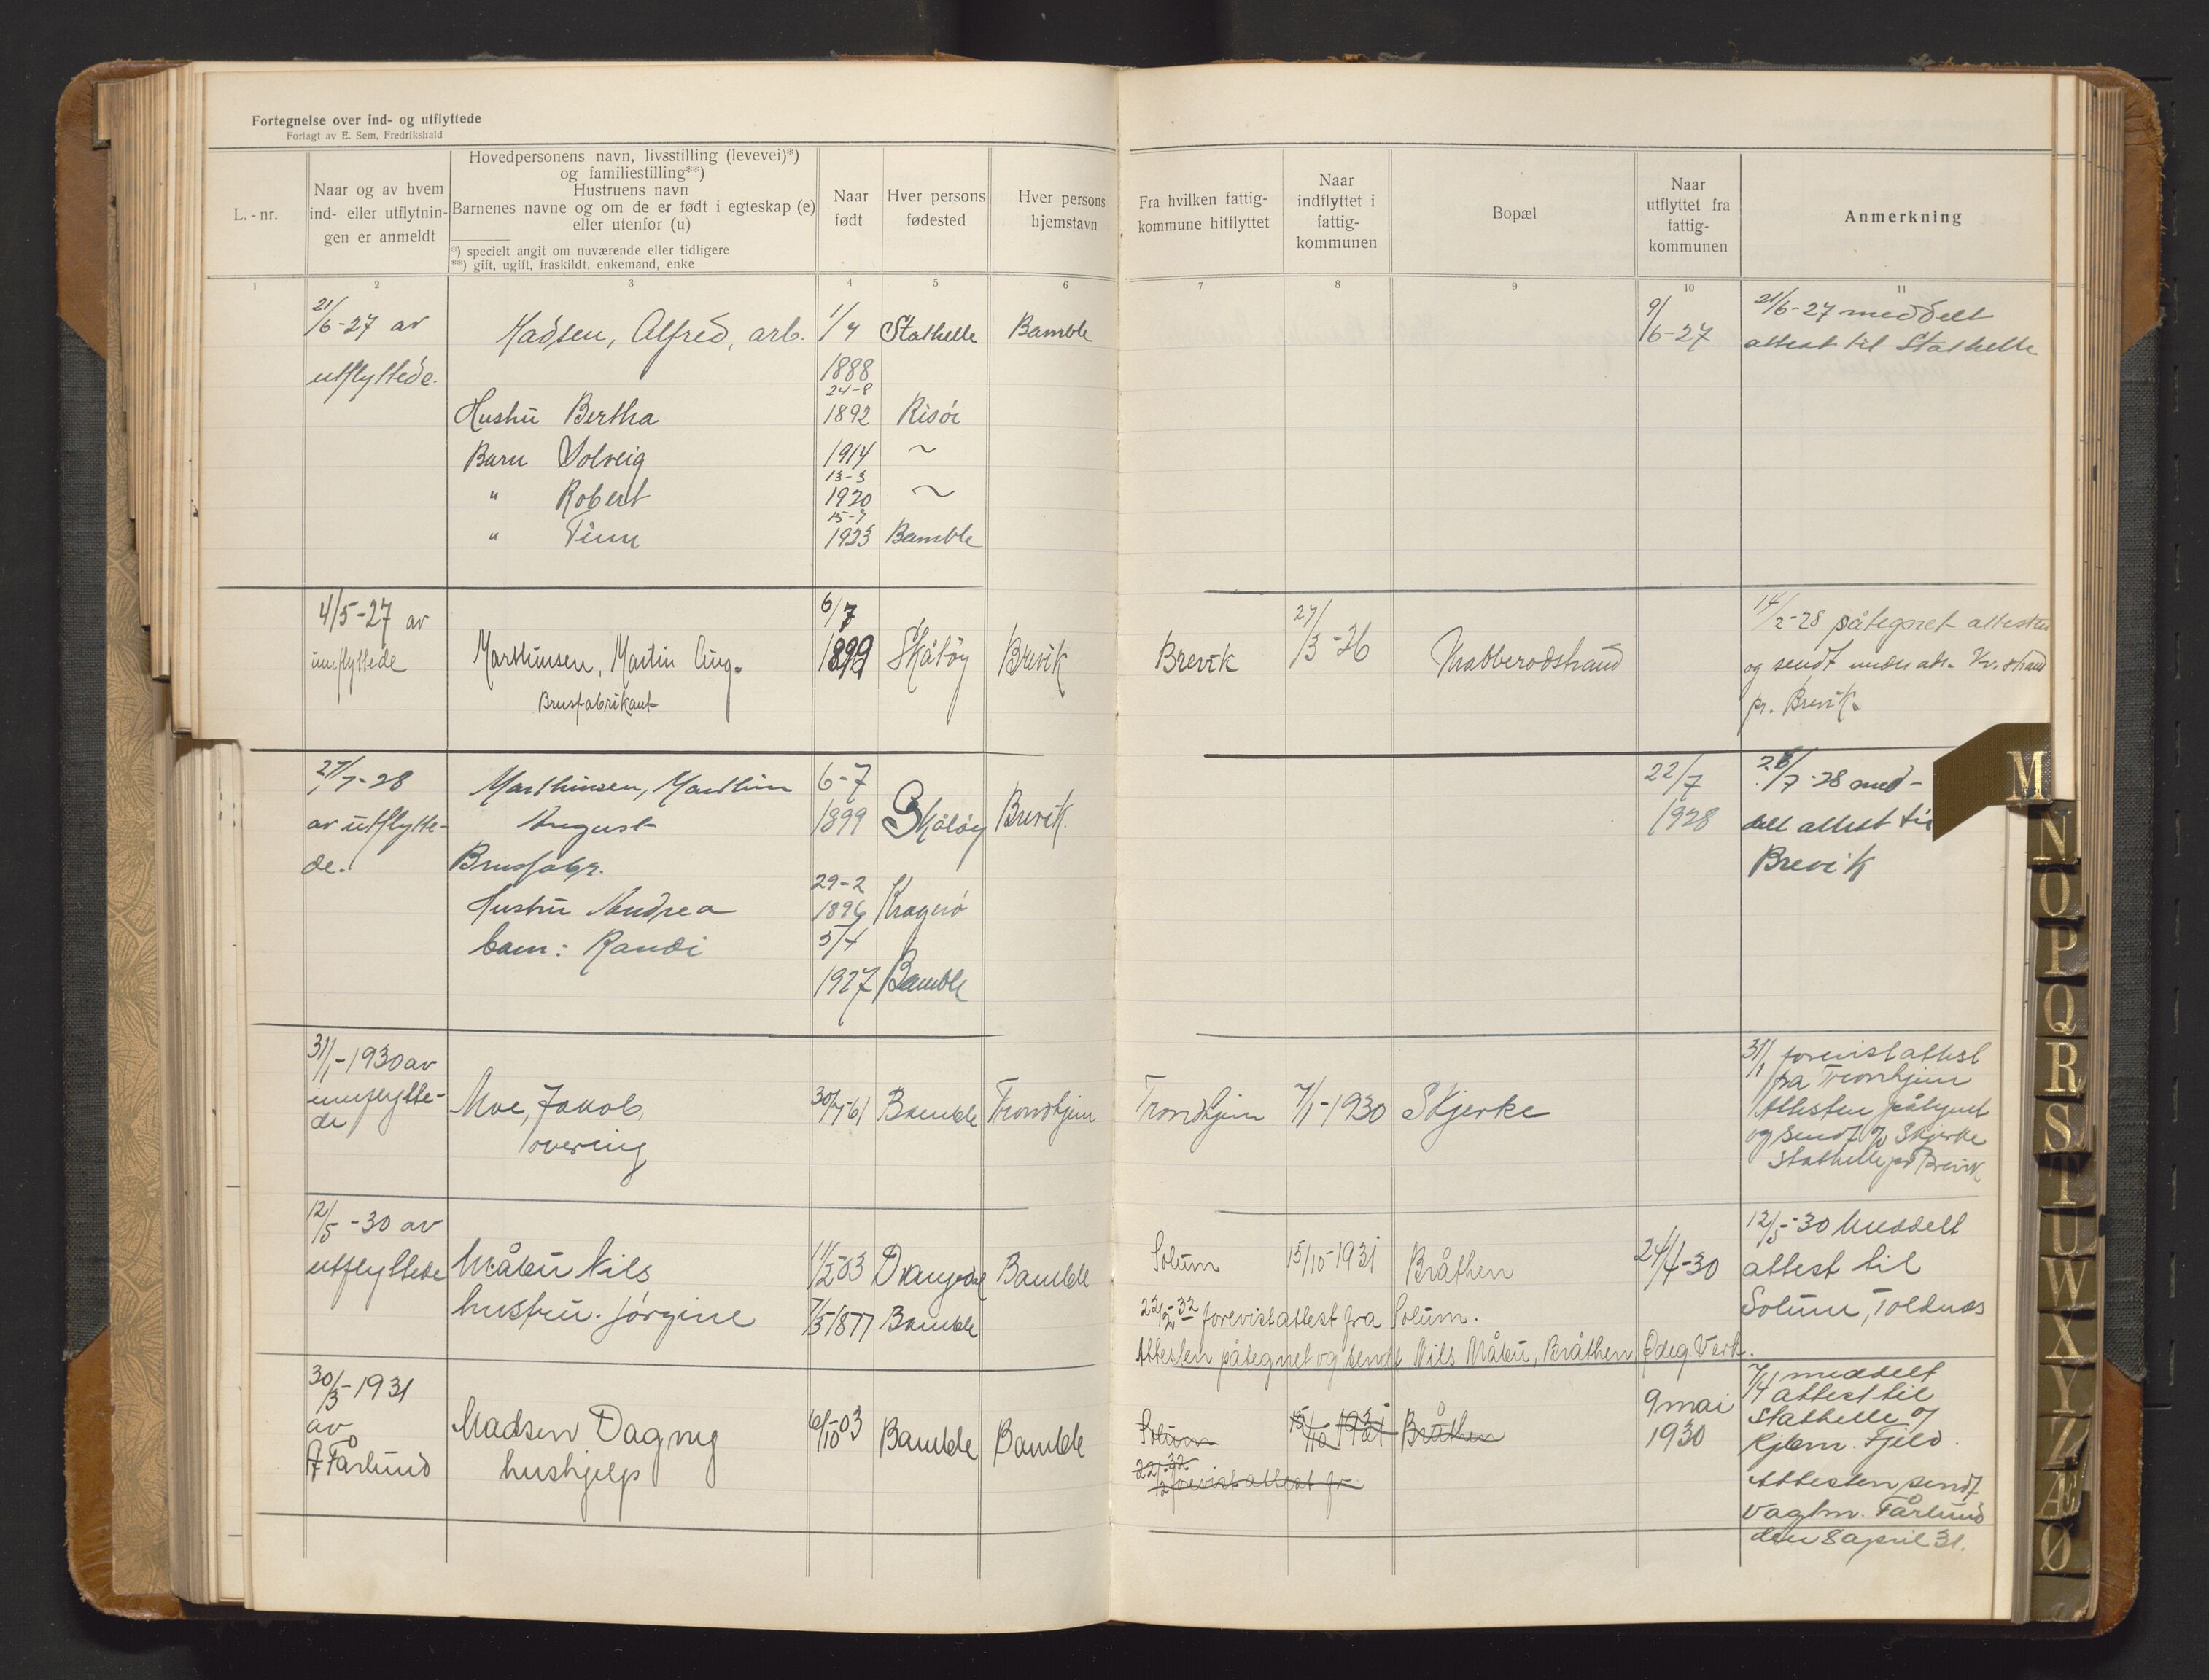 Fortegnelse over ind- og utflyttede
Forlagt av E. Sem, Fredrikshald
L.-nr.
Naar og av hvem
ind- eller utflytnin-
gen er anmeldt
Hovedpersonens navn, livsstilling (levevei)*)
og familiestilling**)
Hustruens navn
Barnenes navne og om de er født i egteskap (e)
eller utenfor (u)
*) specielt angit om nuværende eller tidligere
**) gift, ugift, fraskildt, enkemand, enke
Naar
født
Hver persons
fødested
Hver persons
hjemstavn
Fra hvilken fattig-
kommune hitflyttet
Naar
indflyttet i
fattig-
kommunen
Bopæl
Naar
utflyttet fra
fattig-
kommunen
Anmerkning
1 2 3 4 5 6 7 8 9 10 11
21/6-27 av
utflyttede.
Madsen, Alfred, arb. 1/4 Stathelle Bamble
1888
24-8
Hustru Bertha 1892 Risör
Barn Solveig 1914 ~
13-3
" Robert 1920 ~
15-7
" Finn 1923 Bamble
9/6-27
21/6-27 meddelt
attest til Stathelle
4/5-27 av
innflyttede
Marthinsen, Martin Aug.
Brusfabrikant
6/7
1899 Skåtöy Brevik
Brevik 27/3-26
14/2-28 påtegnet attesten
og sendt under adr. Kr. strand
pr. Brevik.
27/7-28
av utflytte-
de.
Marthinsen, Marthin
August
Brusfabr.
Hustru Andrea
barn: Randi
6-7
1899 Skåtöy Brevik.
29-2
1896 Kragerö
5/4
1927 Bamble
22/7
1928
/7-28 med-
delt attest til
Brevik
31/1-1930 av
innflytte-
de
Moe, Jakob,
overing
30/7-61 Bamble Trondhjem
Trondhjem 7/1-1930 Skjerke
31/1 forevist attest
fra Trondhjem
Attesten påtegnet
og sendt % Skjerke
Stathelle pr Brevik
12/5-30 av
utflyttede
Måtru Nils
hustru. Jörgine
11/2-03 Drangedal Bamble
7/5 1877 Bamble
Solum 15/10-1931 Bråthen
22/2-32 forevist attest fra Solum.
Attesten påtegnet og sendt Nils Måtru, Bråthen Ödeg. Verk.
24/4-30
12/5-30 Meddelt
attest til
Solum, Toldnes
30/3-1931
av
A Fårlund
Madsen Dagny
hushjelp
6/10-03 Bamble Bamble
Solum 15/10 1931 Bråthen
22/2.32.
forevist attest fr
9 mai
1930
7/4 meddelt
attest til
Stathelle og
Kjlem. Fjeld.
Attesten sendt
Vagtm. Fårlund
den 8 april 31.
M
N
O
P
Q
R
S
T
U
W
X
Y
Z
Æ
Ø